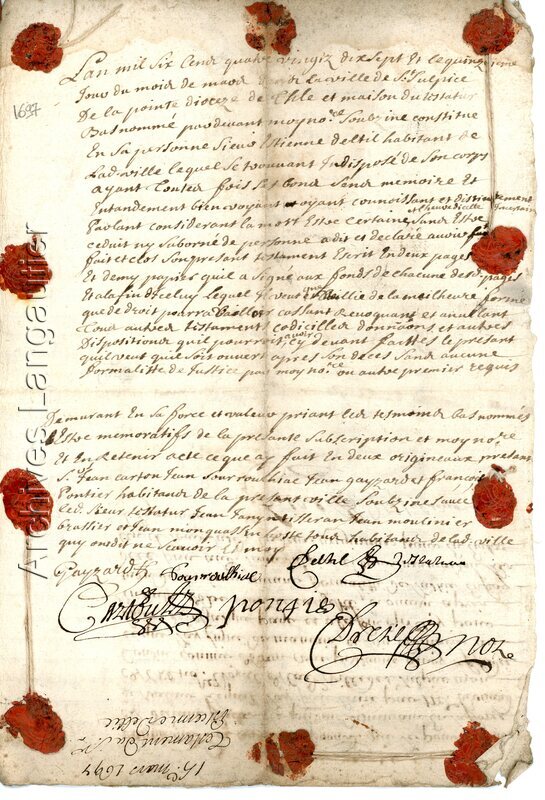 Lan mil six cens quatre vingtz dix sept et le quinzieme
Jour du mois de mars dans la ville de St Sulpice
De la pointe dioceze de et maison du testatur
Bas nommé pardevant moy nore Soubzine constitué
En sa personne Sieur Estienne deltil habitant de
Ladville lequel se trouvant Indisposé de son corps
ayant toutes fois ses bons sens memoire et
Entandement bien voyant oyant connoissant et distinctement
Parlant considerant la mort Estre certaine et lheure dicelle Incertaine sans Estre
ceduit ny suborné de personne a dit et declaré avoir
fait et clos son presant testament Escrit En deux pages
Et demy papier quil a signé aux fonds de chacune desd pages
Et a la fin dicelluy lequel veut vaille de la meilheure forme
que de droit pourra valloir cassant Revoquant et anullant
Tous autres testamens codicilles donnaons et autres
Dispositions quil pourroit avoir cy devant faittes le presant
quil veut que soit ouvert apres son deces sans aucune
formalitte de Justice par moy nore ou autre premier requis
Demurant En sa force et valeur priant les tesmoins bas nommés
Estre memoratifs de la presante Subscription et moy nore
Et En Retenir acte ce que ay fait En deux origineaux presans
Sr Jean carton Jean Sourroulhac Jean gayzard et francois
Pontier habitans de la presant ville Soubzines avec
led Sieur testatur Jean tisseran Jean moulinier
brassier et Jean tous habitans de lad ville
quy ont dit ne scavoir Et moy
Gayzard Sourroulhac Deltil testateur
Pontier
nore
15e mars 1697
Testament du Sr
Estienne Deltil
1697
Archives Langautier